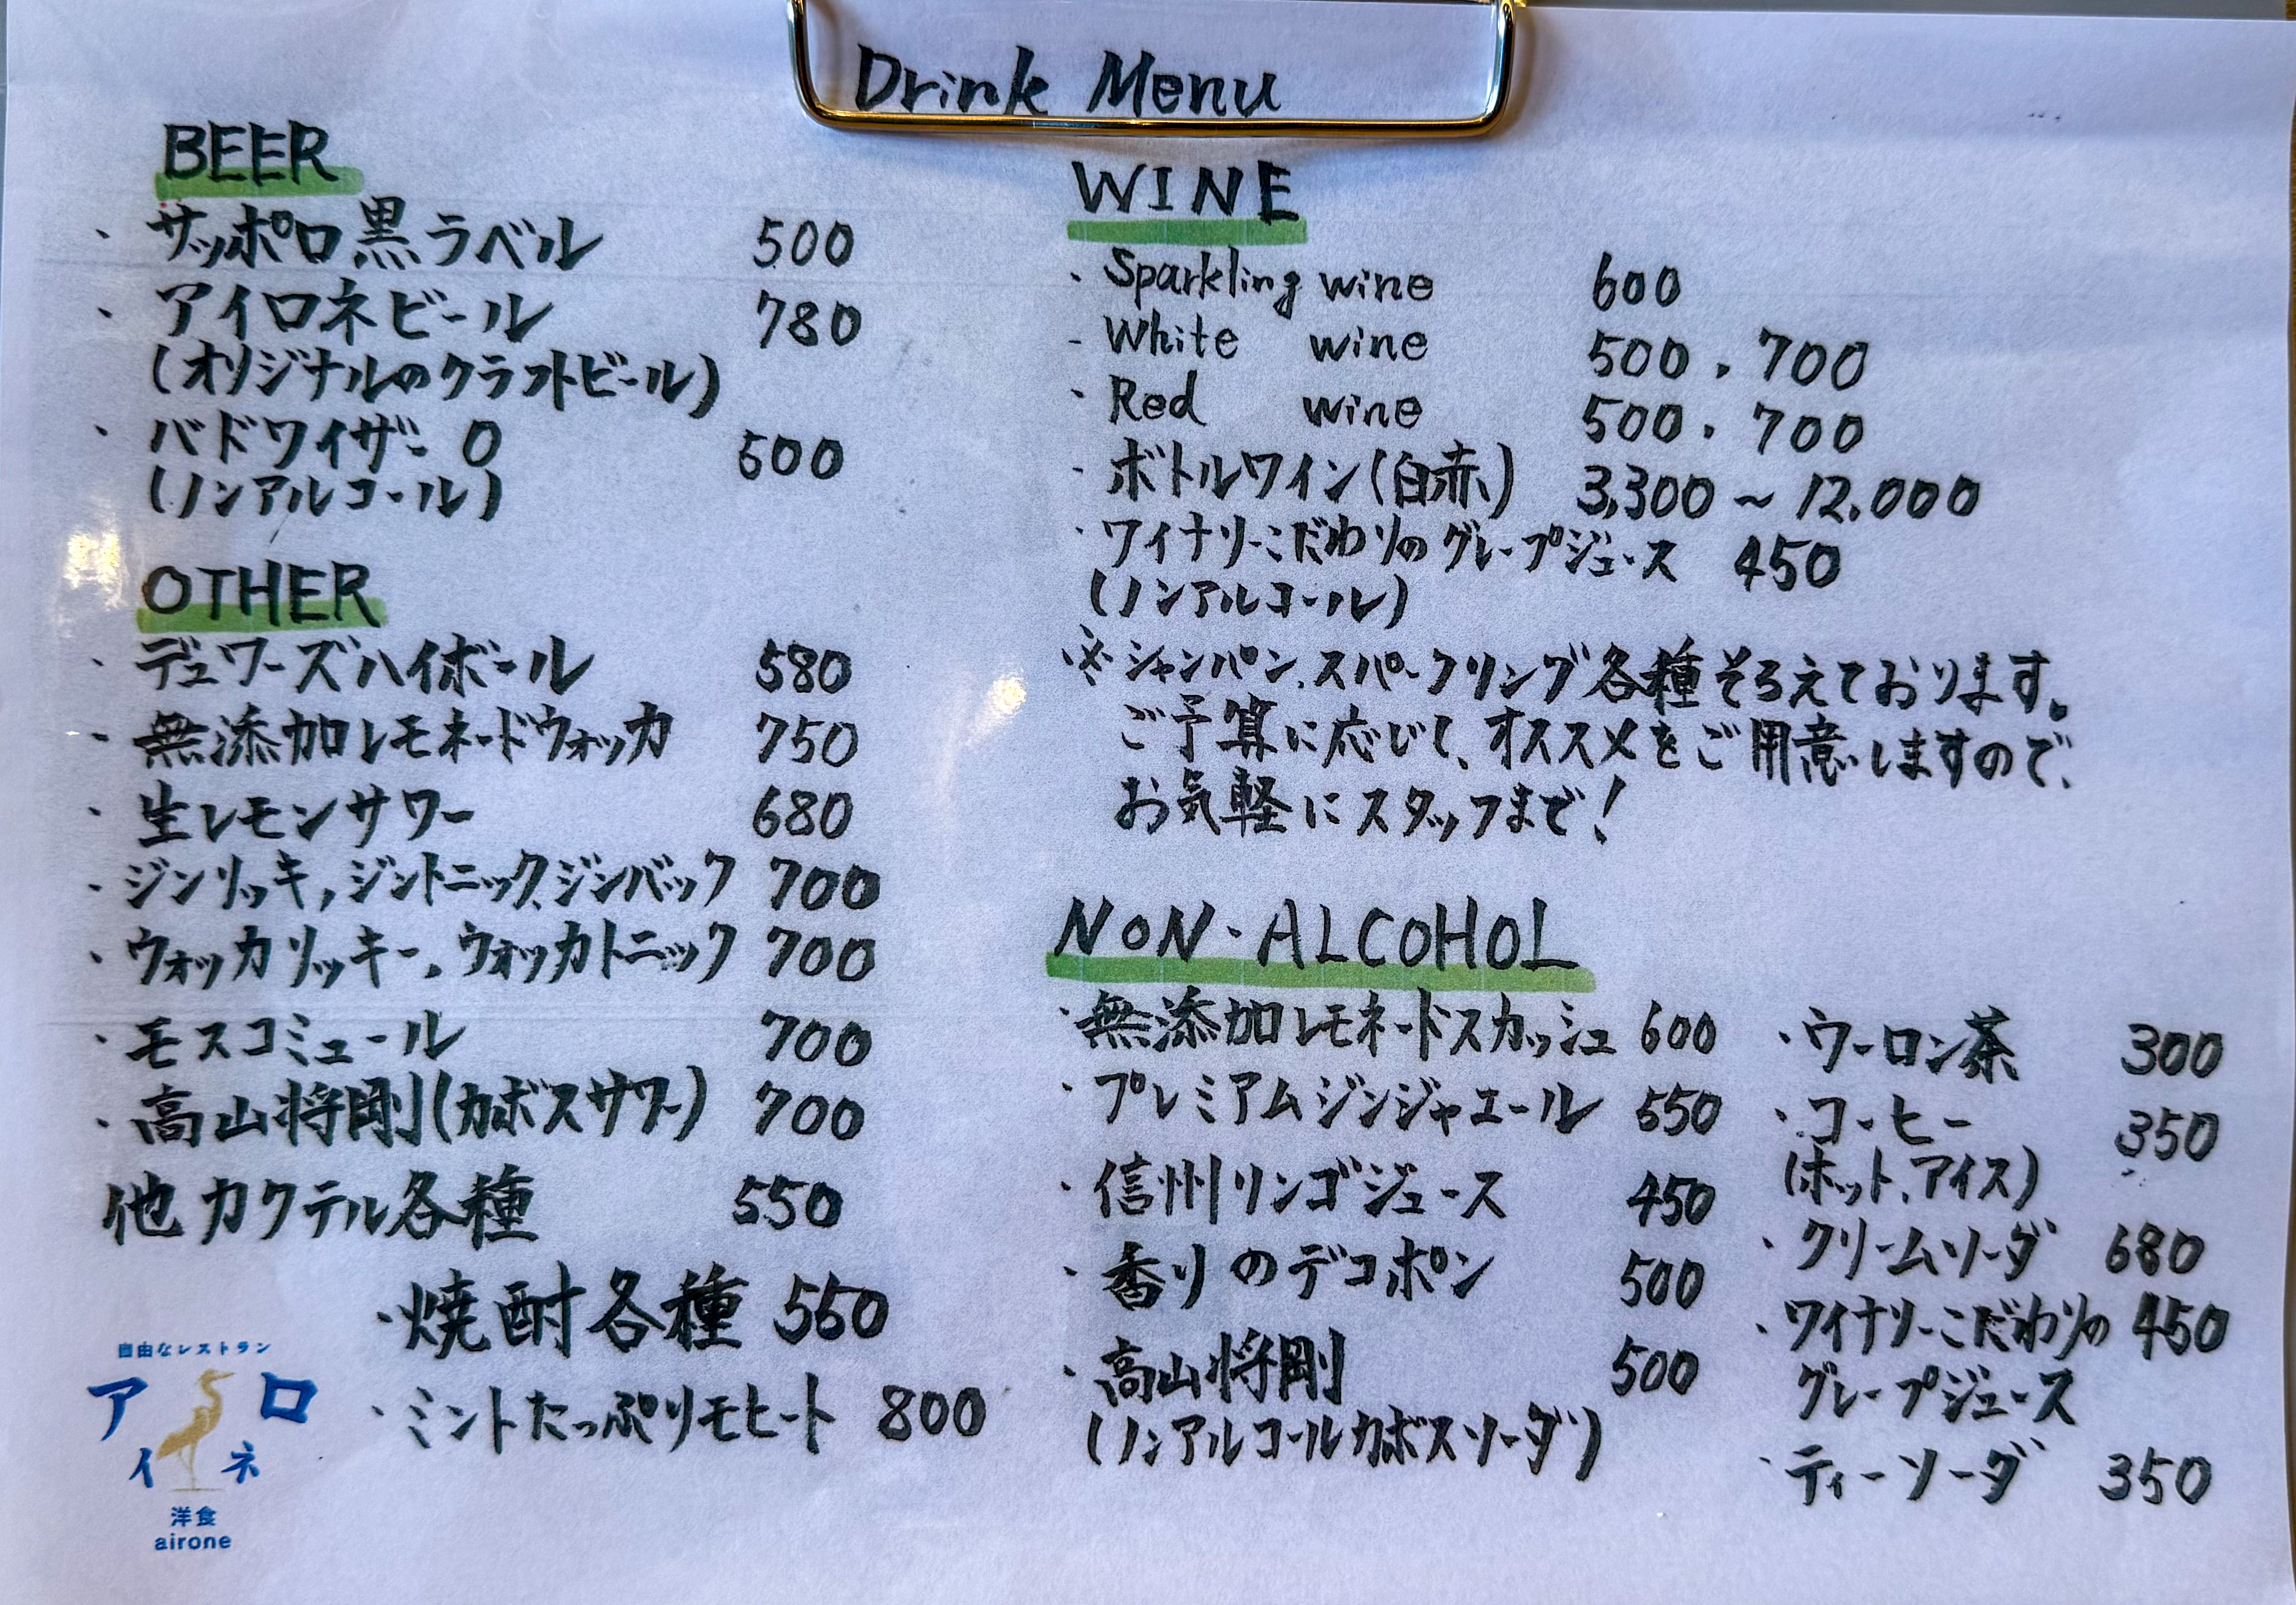 Drink Menu
BEER
・サッポロ黒ラベル 500
・アイロネビール 780
(オリジナルのクラフトビール)
・バドワイザー0 500
(ノンアルコール)
OTHER
・デュワーズハイボール 580
・無添加レモネードウォッカ 750
・生レモンサワー 680
・ジンリッキ,ジントニック,ジンバック 700
・ウォッカリッキー、ウォッカトニック 700
・モスコミュール 700
・高山将剛(カボスサワー) 700
他カクテル各種 550
・焼酎各種 550
・ミントたっぷりモヒート 800
自由なレストラン
アイロネ
洋食
airone
WINE
・Sparkling wine 600
・White wine 500.700
・Red wine 500.700
・ボトルワイン(白赤) 3,300~12.000
・ワイナリーこだわりのグレープジュース 450
(ノンアルコール)
※シャンパン、スパークリング各種そろえております。
ご予算に応じて、オススメをご用意しますので、
お気軽にスタッフまで!
NON-ALCOHOL
・無添加レモネードスカッシュ 600
・プレミアムジンジャエール 550
・信州リンゴジュース 450
・香りのデコポン 500
・高山将剛 500
(ノンアルコールカボスソーダ)
・ウーロン茶 300
・コーヒー 350
(ホット、アイス)
・クリームソーダ 680
・ワイナリーこだわりの 450
グレープジュース
・ティーソーダ 350